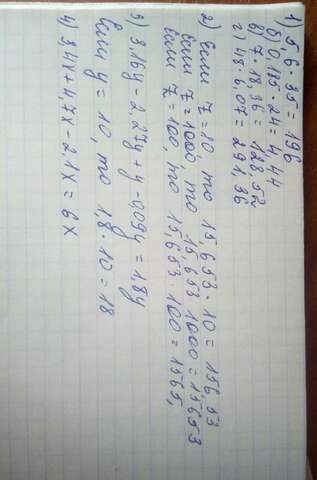 1) 5,6 · 35 = 196
б) 0,185 · 24 = 4,44
в) 7 · 18,36 = 128,52
г) 48 · 6,07 = 291,36
2) если z = 10, то 15,653 · 10 = 156,53
если z = 1000, то 15,653 · 1000 = 15653
если z = 100, то 15,653 · 100 = 1565,
3) 3,16y - 2,27y + y - 0,09y = 1,8y
если y = 10, то 1,8 · 10 = 18
4) 3,4x + 4,7x - 2,1x = 6x